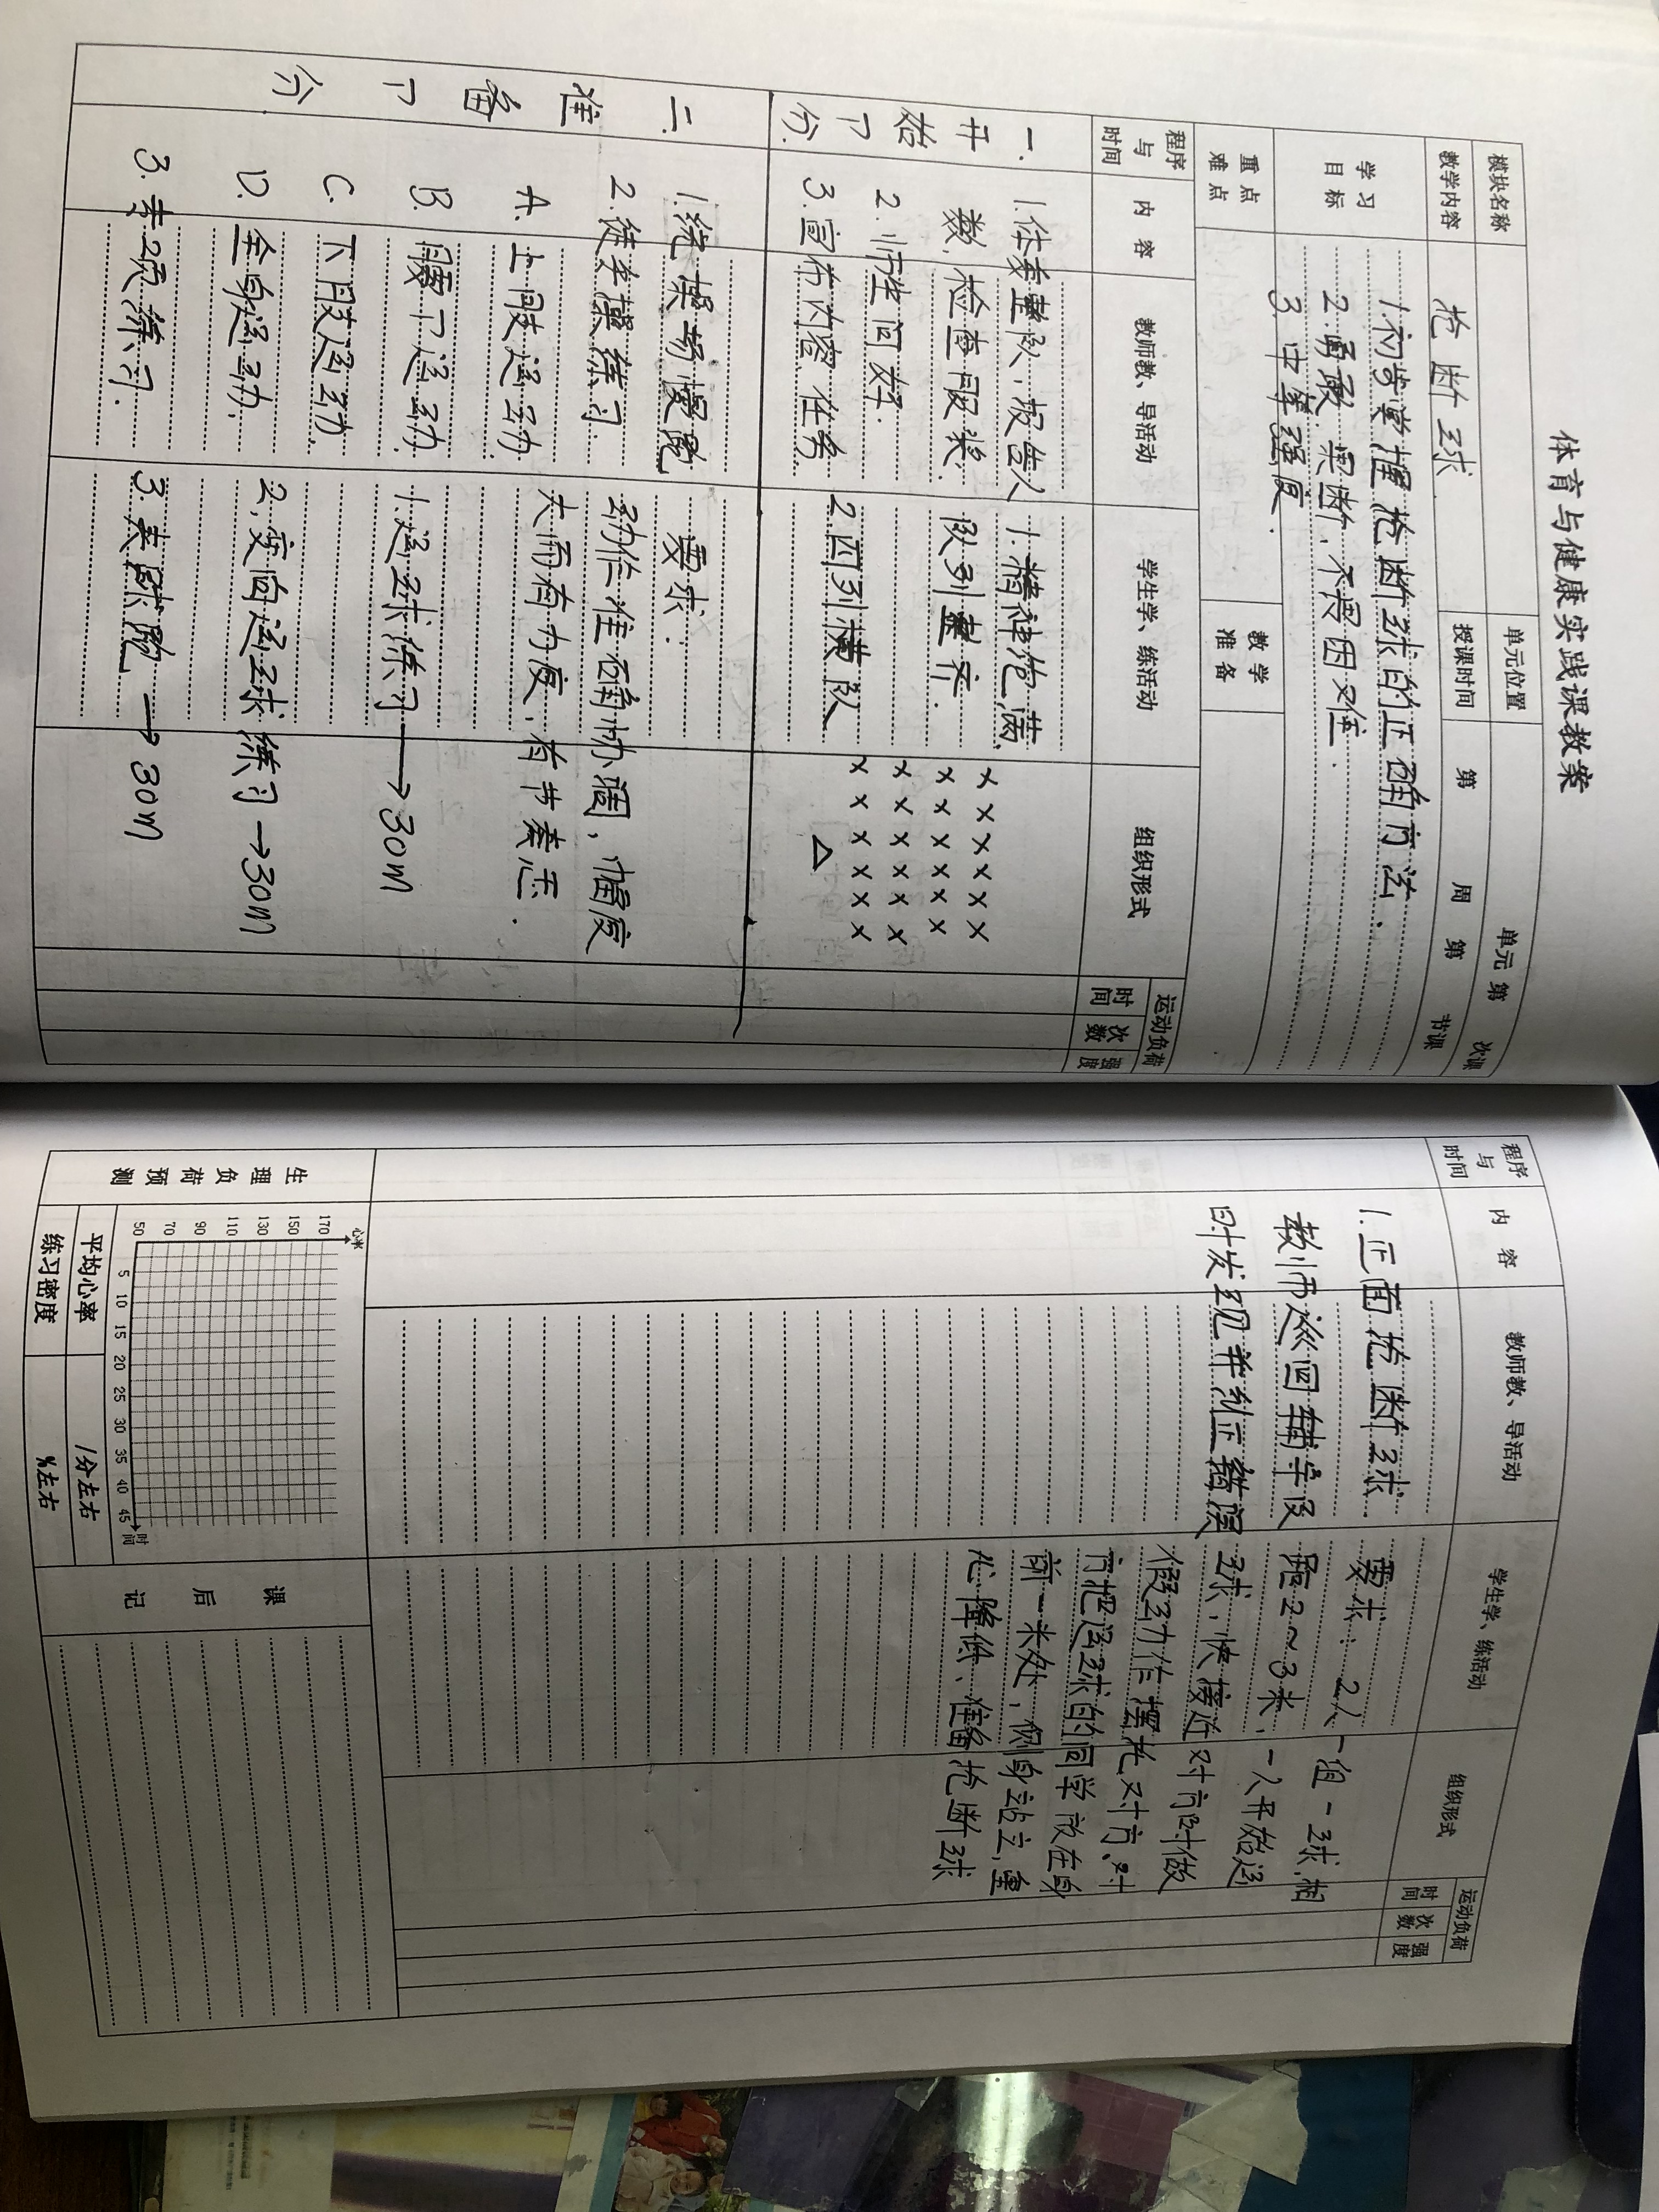 体育与健康实践课教案
模块名称 单元位置 单元 第 次课
教学内容 抢断球 授课时间 第 周 第 节课
学习目标
1.初步掌握抢断球的正确方法.
2.勇敢.果断、不畏困难.
3.中等强度.
重点难点 教学准备
程序与时间 内容 教师教、导活动 学生学、练活动 组织形式 运动负荷
时间 次数 强度
一.开始卩分.
1.体委整队,报告人
数,检查服装.
2.师生问好.
3.宣布内容、任务.
1.精神饱满
队列整齐.
2.四列横队
× × × × ×
× × × × ×
× × × × ×
× × × × ×
△
二.准备卩分
1.绕操场慢跑
2.徒手操练习.
A.上肢运动
B.腰卩运动
C.下肢运动.
D.全身运动.
3.专项练习.
要求:
动作准确协调,幅度
大而有力度,有节奏感.
1.运球练习→30m
2.变向运球练习→30m
3.夹球跑→30m
程序与时间 内容 教师教、导活动 学生学、练活动 组织形式 运动负荷
时间 次数 强度
1.正面抢断球
教师巡回辅导及
时发现并纠正错误
要求:2人一组一球,相
距2~3米,一人开始运
球,快接近对方时做
假动作摆脱对方.对
方把运球的同学放在身
前一米处,侧身站立,重
心降低、准备抢断球
生理负荷预测
心率
170
150
130
110
90
70
50
5 10 15 20 25 30 35 40 45 时间
平均心率 /分左右
练习密度 %左右
课后记